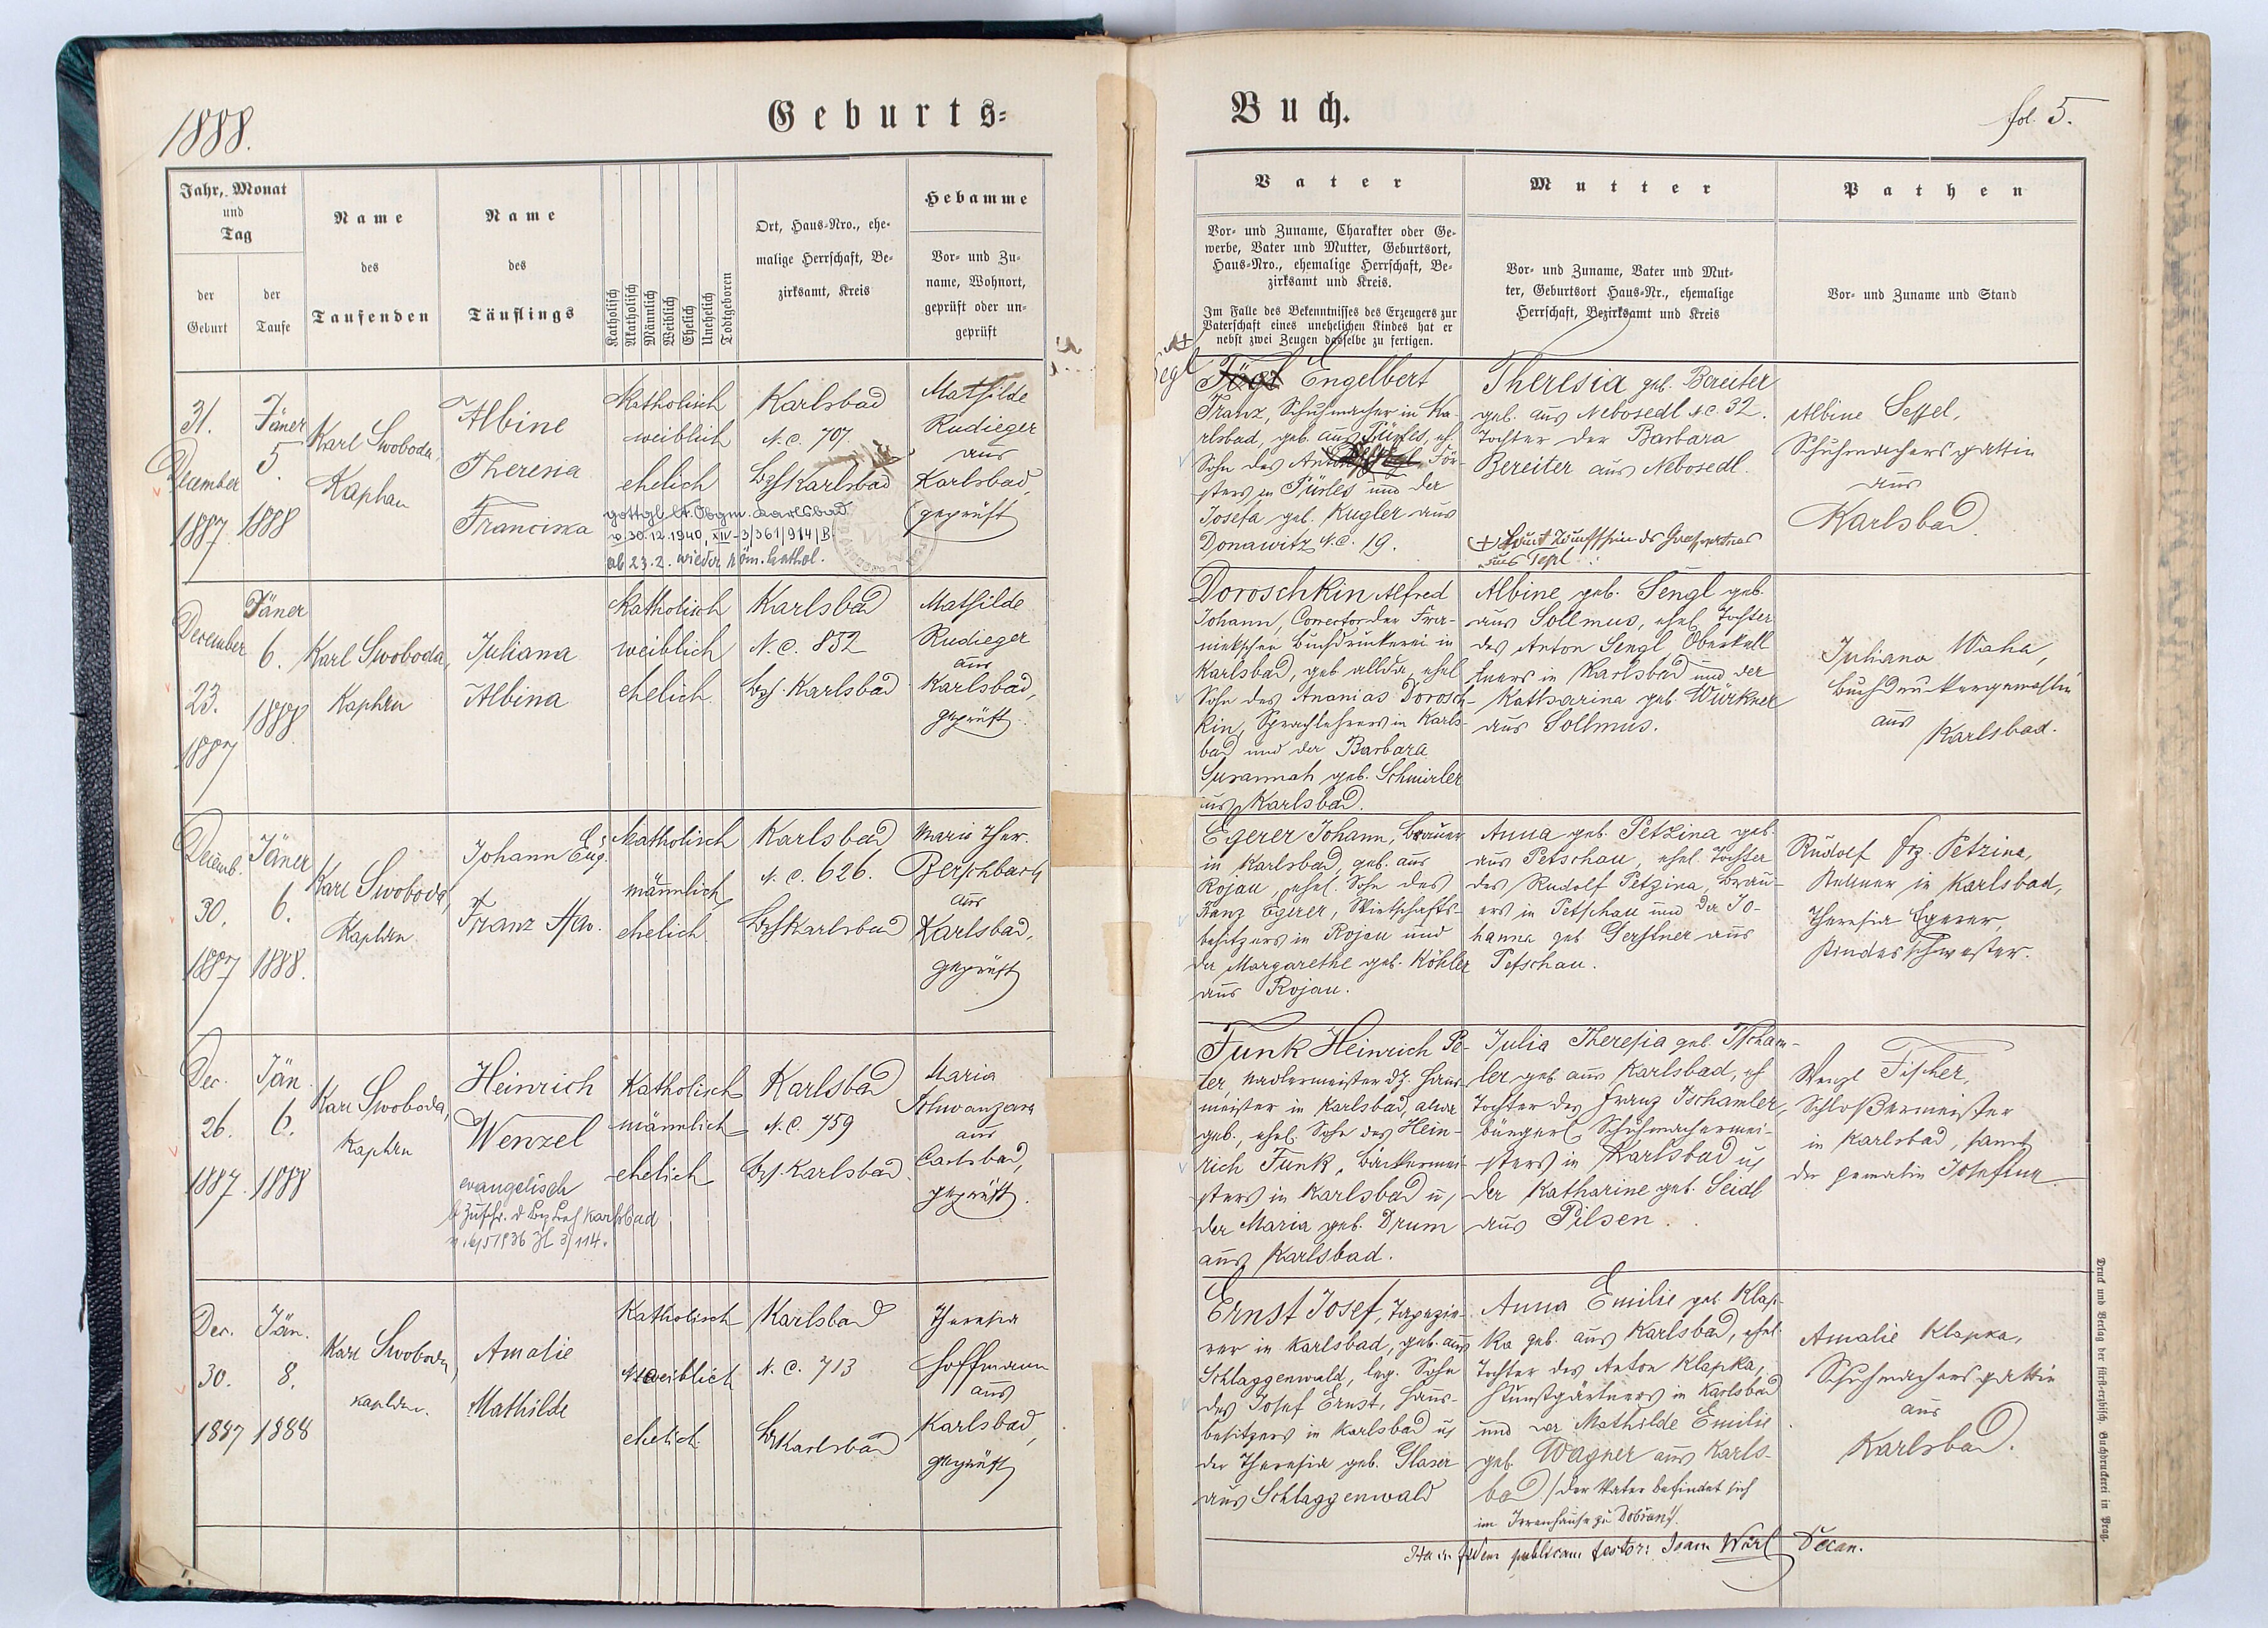 1888.
Geburts=
Jahr, Monat
und
Tag
der
Geburt
der
Taufe
Name
des
Taufenden
Name
des
Täuflings
Katholisch
Akatholisch
Männlich
Weiblich
Ehelich
Unehelich
Todtgeboren
Ort, Haus=Nro., ehe=
malige Herrschaft, Be=
zirksamt, Kreis
Hebamme
Vor= und Zu=
name, Wohnort,
geprüft oder un=
geprüft
31.
December
1887
Jäner
5.
1888
Karl Swoboda,
Kaplan
Albine
Theresia
Franciska
Katholisch
weiblich
ehelich
gottgl. lt. Obgm. Karlsbad
v. 30.12.1940, XIV-3/361/914/B.
ab 23.2. wieder röm. kathol.
Karlsbad
N.C. 707.
Bzf Karlsbad
Mathilde
Rudieger
aus
Karlsbad,
geprüft
December
23.
1887
Jäner
6.
1888
Karl Swoboda,
Kaplan
Juliana
Albina
Katholisch
weiblich
ehelich
Karlsbad
N.C. 852
Bzf. Karlsbad
Mathilde
Rudieger
aus
Karlsbad,
geprüft
Decemb.
30.
1887
Jäner
6.
1888.
Karl Swoboda,
Kaplan
Johann Eug.
Franz
Katholisch
männlich
ehelich
Karlsbad
N.C. 626.
Bzf Karlsbad
Marie Ther.
Berschbach
aus
Karlsbad,
geprüft
Dec.
26.
1887.
Jän.
6.
1888
Karl Swoboda,
Kaplan
Heinrich
Wenzel
evangelisch
Karlsbad
Katholisch
männlich
ehelich
Karlsbad
N.C. 759
Bzf. Karlsbad
Maria
Schwanzara
aus
Carlsbad,
geprüft.
Dec.
30.
1887
Jän.
8.
1888
Karl Swoboda,
Kaplan.
Amalie
Mathilde
Katholisch
weiblich
ehelich
Karlsbad
N.C. 713
Bzf Karlsbad
Theresia
Hoffmann
aus
Karlsbad,
geprüft
Buch.
fol. 5.
Vater
Vor= und Zuname, Charakter oder Ge=
werbe, Vater und Mutter, Geburtsort,
Haus=Nro., ehemalige Herrschaft, Be=
zirksamt und Kreis.
Im Falle des Bekenntnisses des Erzeugers zur
Vaterschaft eines unehelichen Kindes hat er
nebst zwei Zeugen dasselbe zu fertigen.
Mutter
Vor= und Zuname, Vater und Mut=
ter, Geburtsort Haus=Nr., ehemalige
Herrschaft, Bezirksamt und Kreis
Pathen
Vor= und Zuname und Stand
Engelbert
Franz, Schuhmacher in Ka-
rlsbad, geb. aus Pürles, eh.
Sohn des Anton För-
sters in Pürles und der
Josefa geb. Kugler aus
Donawitz N.C. 19.
Theresia geb. Bereiter
geb. aus Nebosedl N.C. 32.
Tochter der Barbara
Bereiter aus Nebosedl.
aus Tepl
Albine Seffel,
Schuhmachersgattin
aus
Karlsbad
Doroschkin Alfred
Johann, Corrector der Fra-
nieckschen Buchdruckerei in
Karlsbad, geb. allda, ehel.
Sohn des Ananias Dorosch-
kin, Sprachlehrers in Karls-
bad und der Barbara
Susannah geb. Schmirler
aus Karlsbad.
Albine geb. Sengl geb.
aus Sollmus, ehel. Tochter
des Anton Sengl, Oberkell-
ners in Karlsbad und der
Katharina geb. Würkner
aus Sollmus.
Juliana Waha,
Buchdruckersgemahlin
aus
Karlsbad.
Egerer Johann, Brauer
in Karlsbad, geb. aus
Rojau, ehel. Sohn des
Franz Egerer, Wirtschafts-
besitzers in Rojau und
der Margarethe geb. Köhler
aus Rojau.
Anna geb. Petzina geb.
aus Petschau, ehel. Tochter
des Rudolf Petzina, Brau-
ers in Petschau und der Jo-
hanna geb. Gerstner aus
Petschau.
Rudolf Frz. Petzina,
Kellner in Karlsbad,
Theresia Egerer,
Kindesschwester.
Funk Heinrich Pe-
ter, Nadlermeister dz. Haus-
meister in Karlsbad, alda
geb., ehel. Sohn des Hein-
rich Funk, Bäckermei-
sters in Karlsbad u.
der Maria geb. Drum
aus Karlsbad.
Julia Theresia geb. Tscham-
ler geb. aus Karlsbad, eh.
Tochter des Franz Tschamler,
bürgerl. Schuhmachermei-
sters in Karlsbad u.
der Katharine geb. Seidl
aus Pilsen.
Wenzl Fischer,
Schloßermeister
in Karlsbad, samt
der Gemalin Josefine
Ernst Josef, Tapezie-
rer in Karlsbad, geb. aus
Schlaggenwald, leg. Sohn
des Josef Ernst, Haus-
besitzers in Karlsbad u.
der Theresia geb. Glaser
aus Schlaggenwald
Anna Emilie geb. Klap-
ka geb. aus Karlsbad, ehel.
Tochter des Anton Klapka,
Kunstgärtners in Karlsbad
und der Mathilde Emilie
geb. Wagner aus Karls-
bad / der Vater befindet sich
im Irrenhause zu Dobřan /.
Amalie Klapka,
Schuhmachersgattin
aus
Karlsbad.
fidem publicam testor: Decan.
Druck und Verlag der fürst=erzbisch. Buchdruckerei in Prag.